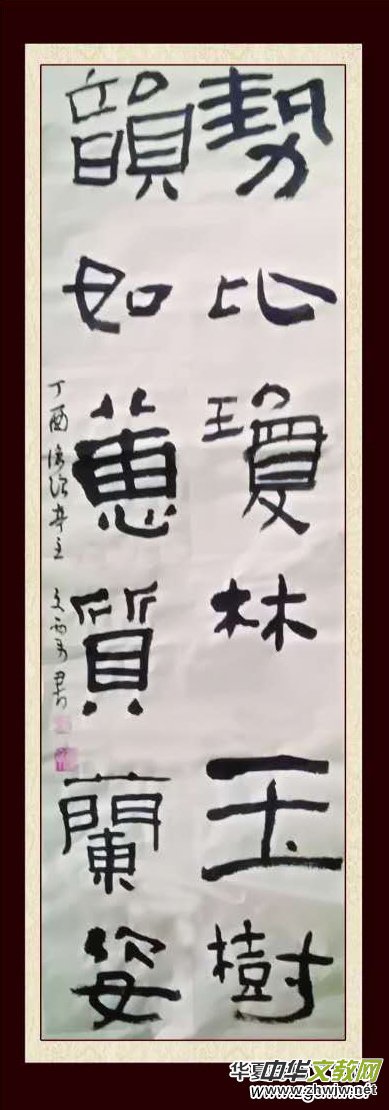 勢比瓊林玉樹
韻如蕙質蘭姿
丁酉 主 文 書
华夏中华文教网
www.zhwjw.net